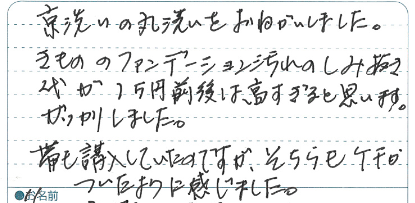 京洗いの丸洗いをおねがいしました。
きもののファンデーション汚れのしみ抜き
代が1万円前後は、高すぎると思います。
がっかりしました。
帯も購入していたのですが、そちらもケチが
ついたように感じました。
●お名前